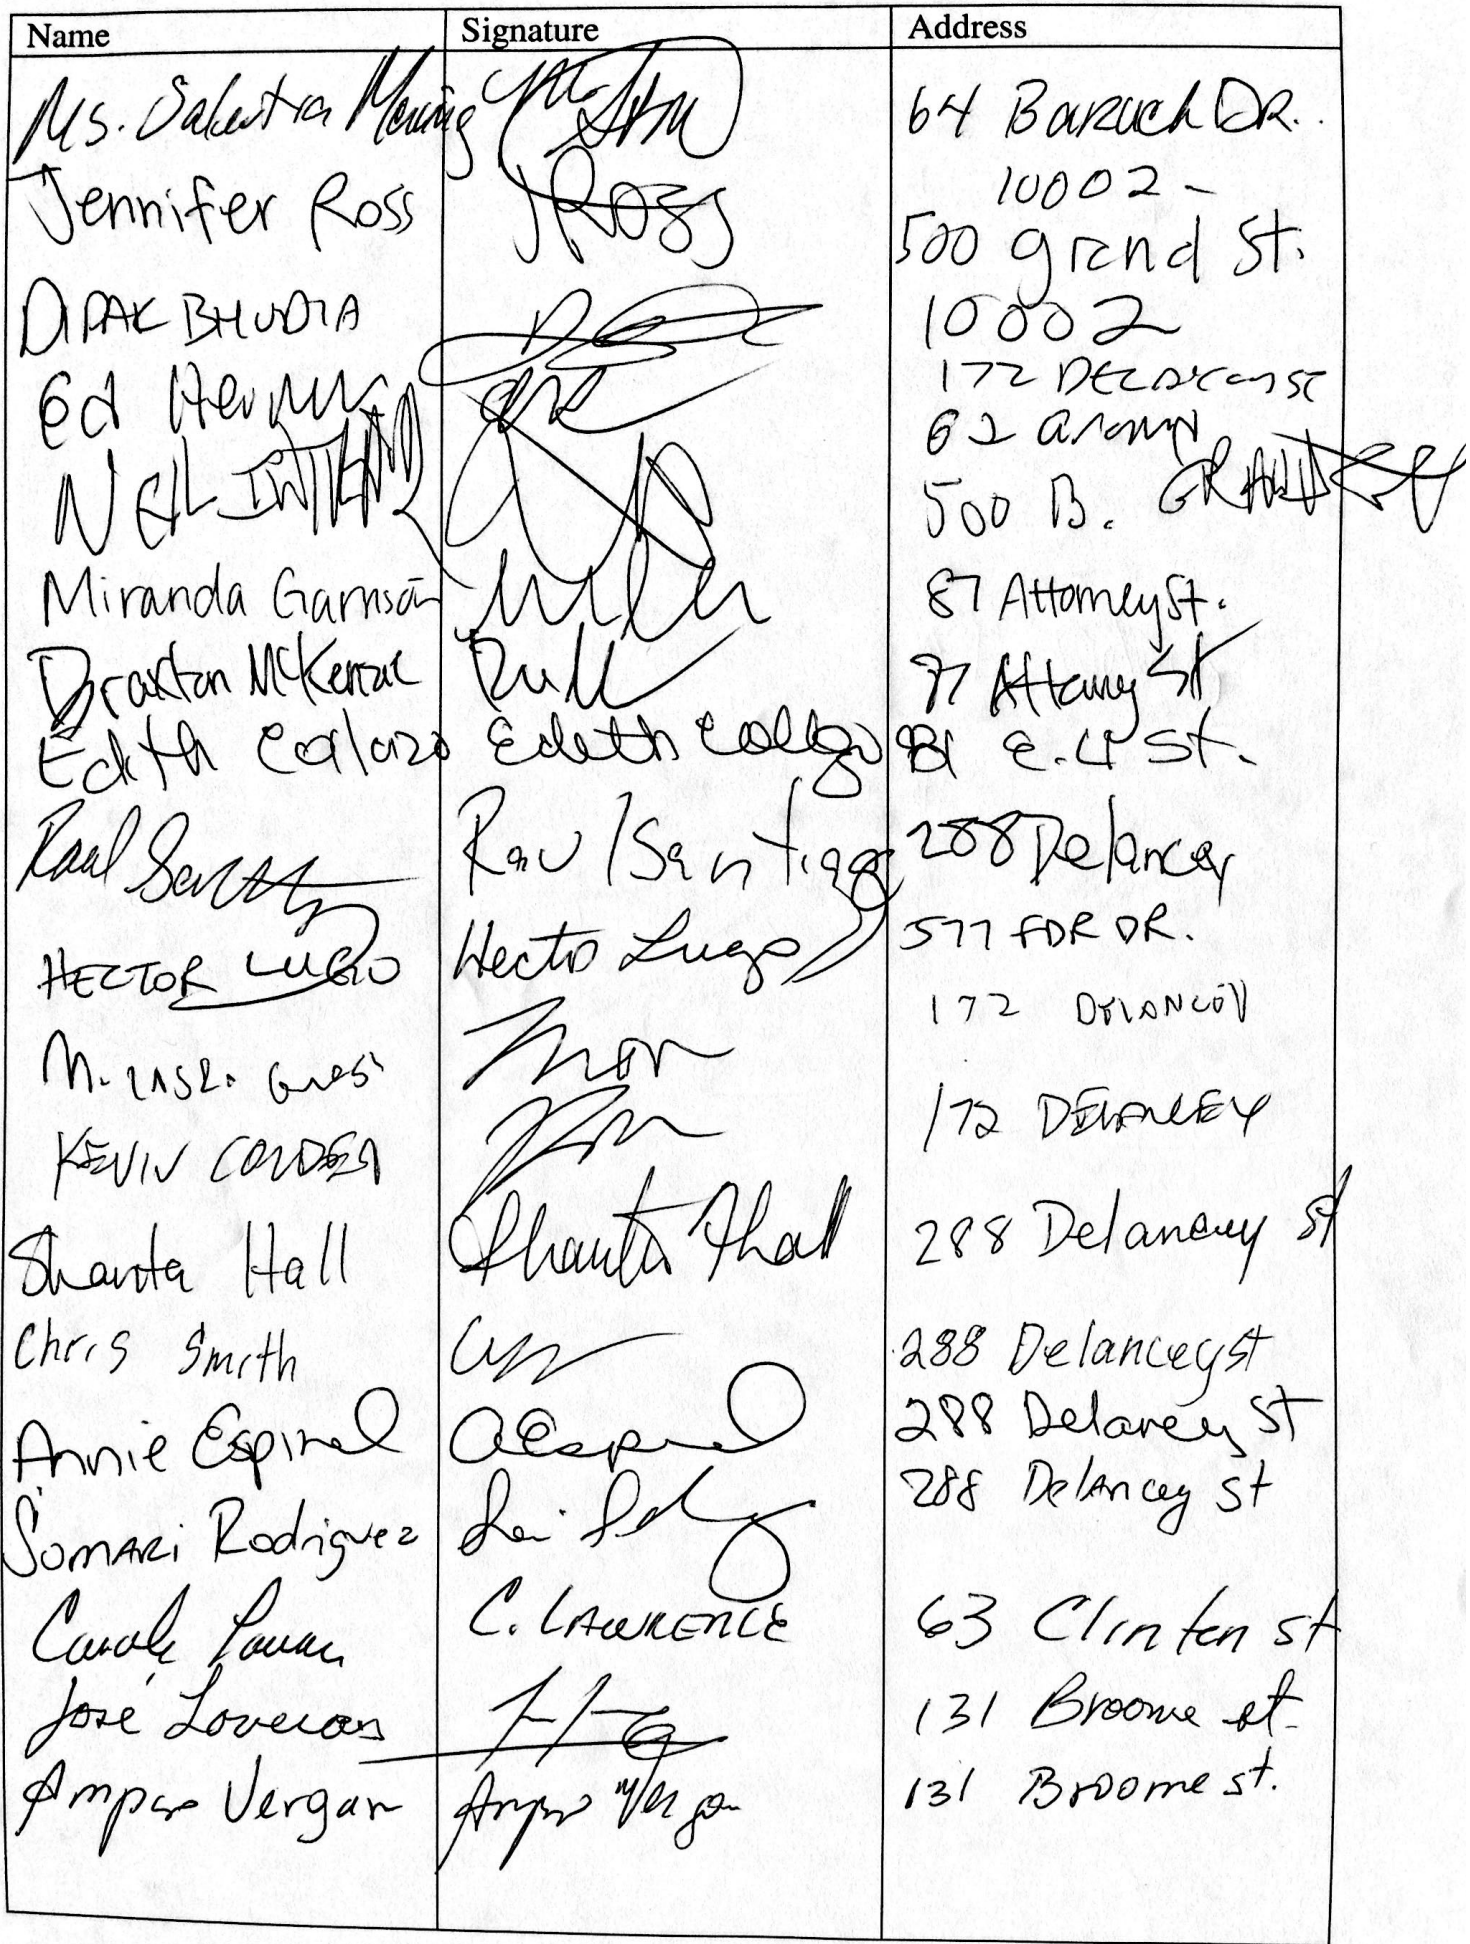 Name Signature Address
Ms. 64 Baruch DR.
10002 -
Jennifer Ross JRoss 500 grand St.
10002
DIPAK BHUDIA 172
Ed 62
NEIL 500 B. GRAND
Miranda Garrison 87 Attorney St.
Braxton McKenzie 87 Attorney St
Edith Collazo Edith Collazo 81 E. 4 St.
Raul Raul Santiago 288 Delancey
HECTOR LUGO Hector Lugo 577 FDR DR.
M. 172 DELANCEY
KEVIN 172 DELANCEY
Shanta Hall Shanta Hall 288 Delancey st
Chris Smith 288 Delancey st
Annie Espinal AEspinal 288 Delancey St
Somari Rodriguez 288 Delancey st
Carole C. LAWRENCE 63 Clinton st
José Loveras 131 Broome st.
Amparo Vergara Amparo Vergara 131 Broome st.